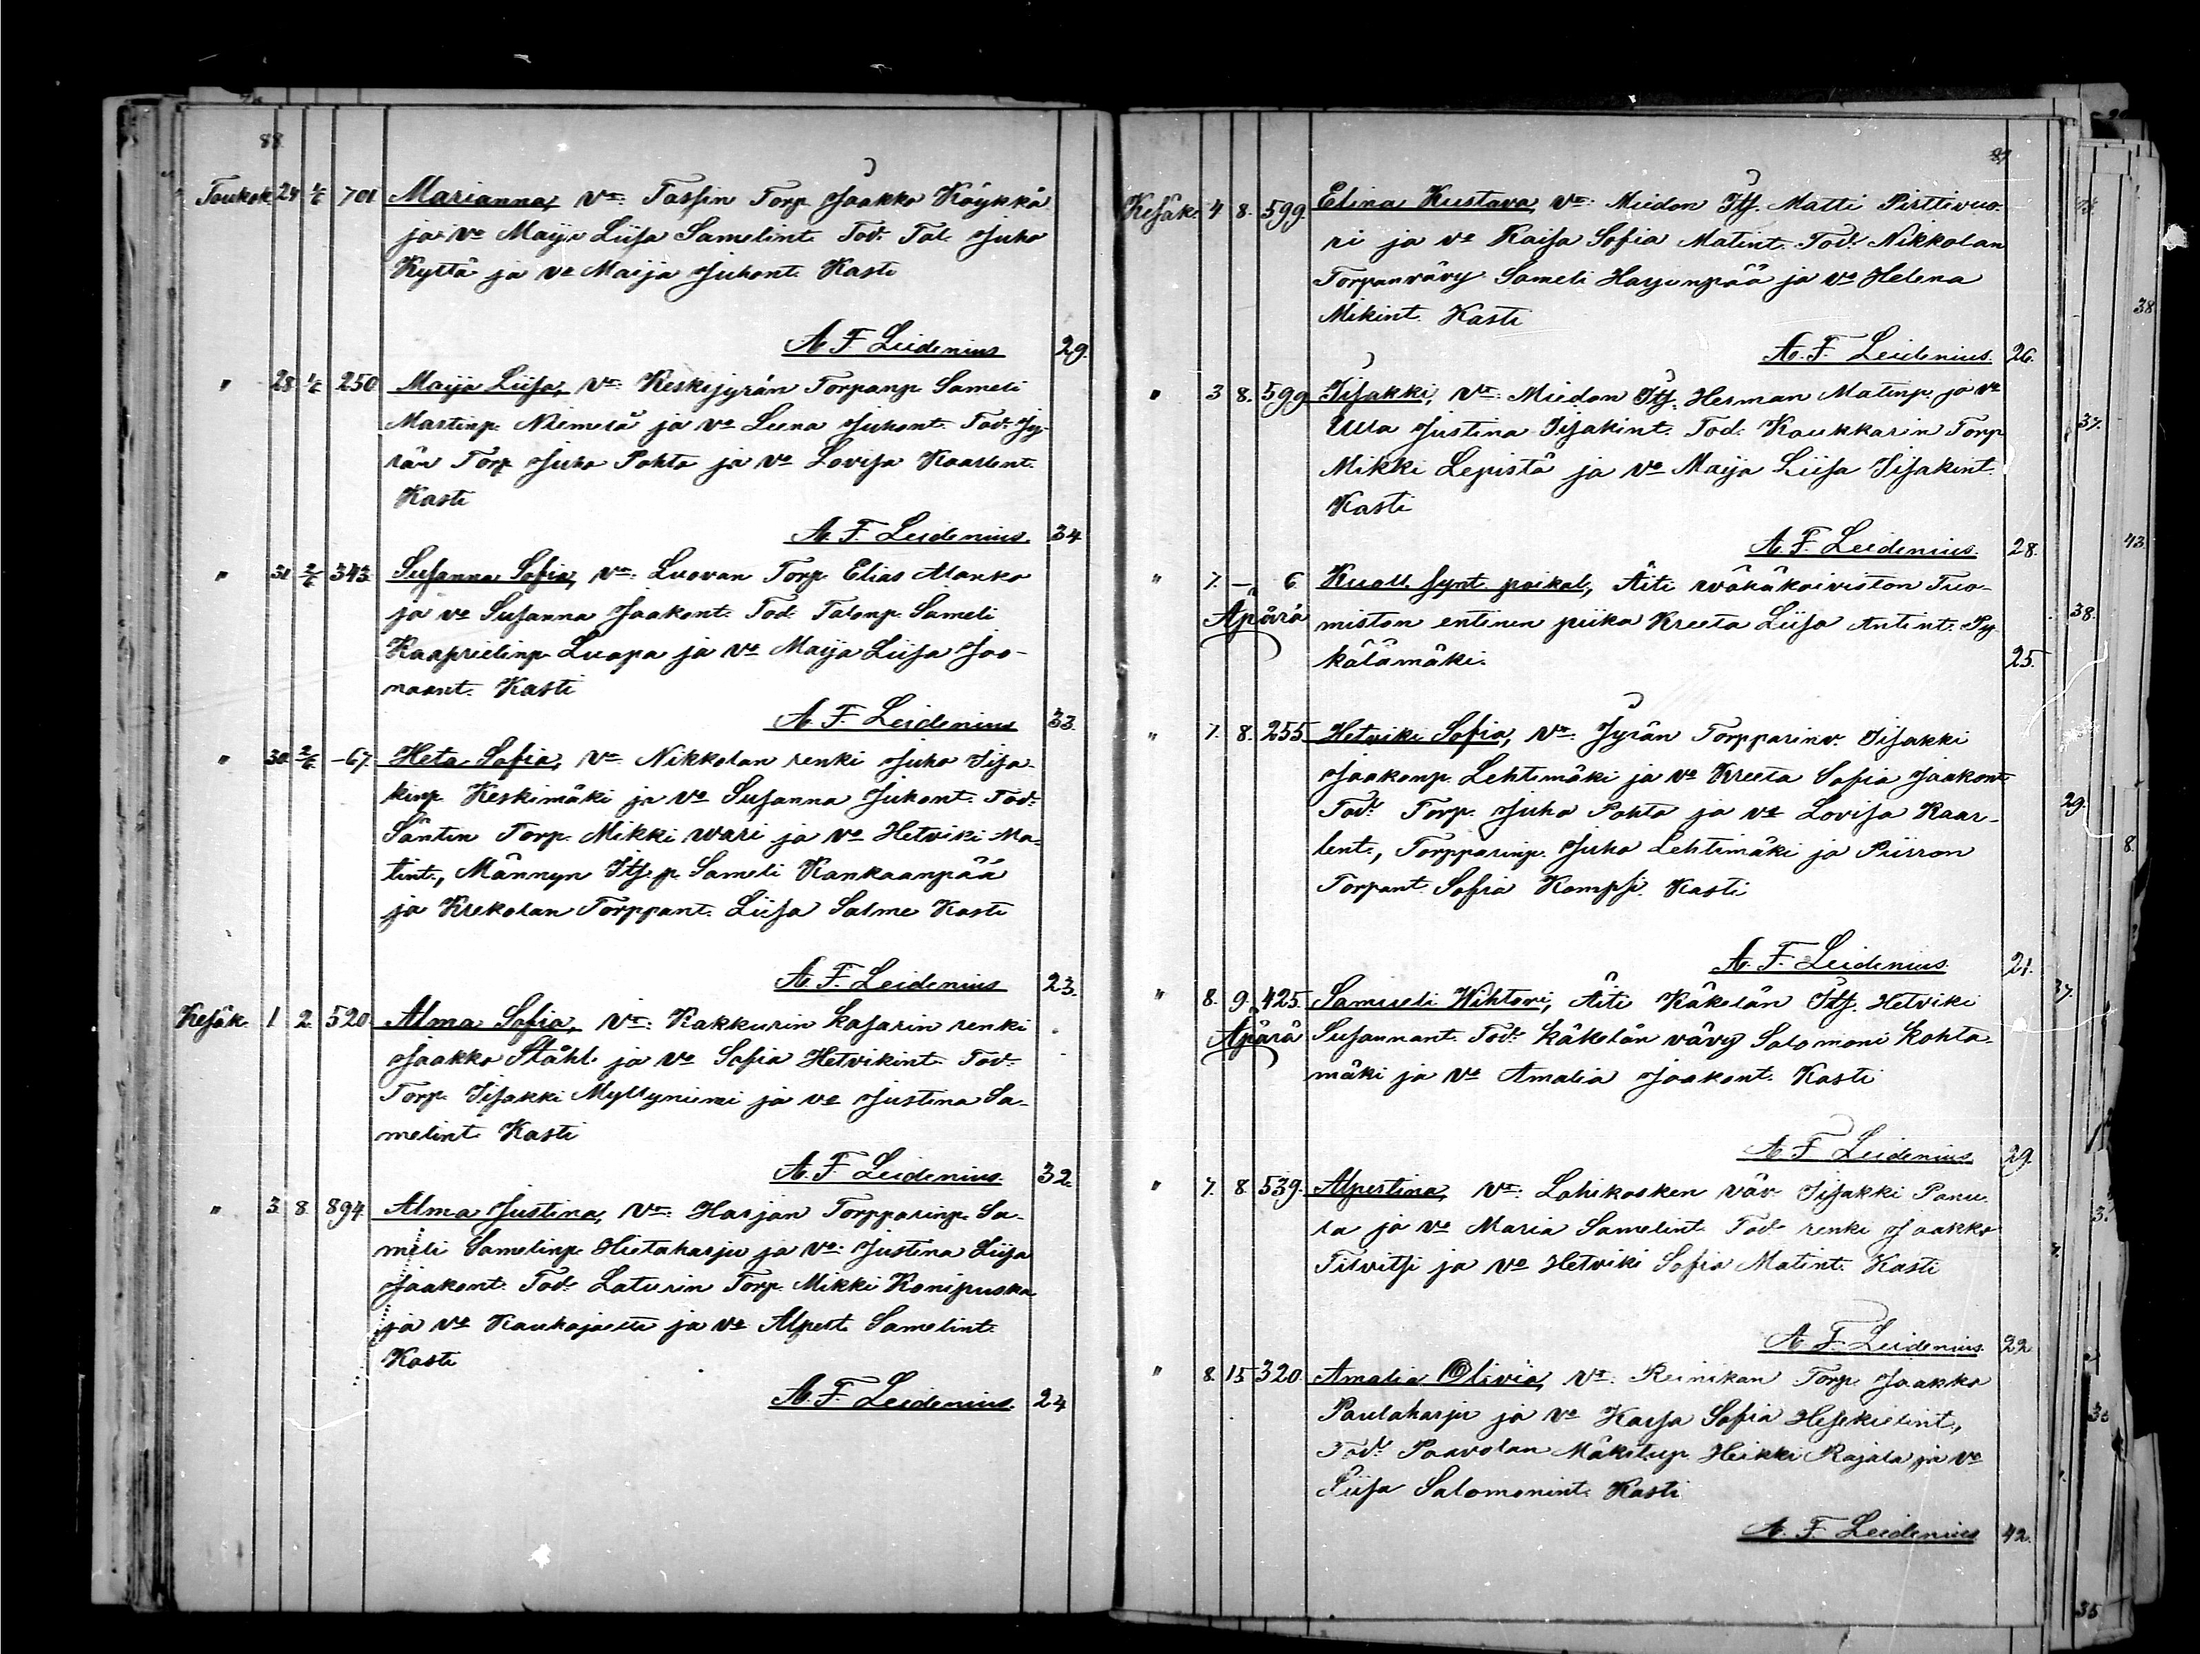 88.
Toukok. 24 1/6 701 Marianna, Vt: Tassin Torp. Jaakko Köykkä
ja vo Maija Liisa Samelint. Tod. Tal. Juho
Kyttä ja vo Maija Juhont. Kasti
A. F. Leidenius 29.
" 28 1/6 250 Maija Liisa, Vt: Keskijyrän Torpanp. Sameli
Martinp. Niemelä ja vo Leena Juhont. Tod. Jy-
rän Torp. Juho Pohto ja vo Lovisa Kaarlent.
Kasti
A. F. Leidenius. 34
" 31 2/6 343. Susanna Sofia, Vt: Luovan Torp. Elias Alanko
ja vo Susanna Jaakont. Tod. Talonp. Sameli
Kaaprielinp. Luopa ja vo Maija Liisa Joo-
naant. Kasti
A. F. Leidenius 33.
" 30 2/6 -67. Heta Sofia, Vt: Nikkolan renki Juho Iisa-
kinp. Keskimäki ja vo Susanna Juhont. Tod:
Santin Torp. Mikki wari ja vo Hetviki Ma-
tint., Männyn Itf. p. Sameli Kankaanpää
ja Krekolan Torppant. Liisa Salme Kasti
A. F. Leidenius 23.
Kesäk. 1 2. 520 Alma Sofia, Vt: Kakkurin Kasarin renki
Jaakko Ståhl ja vo Sofia Hetvikint. Tod:
Torp. Iisakki Myllyniemi ja vo Justina Sa-
melint. Kasti
A. F. Leidenius. 32.
" 3. 8. 894 Alma Justina, Vt: Harjan Torpparinp. Sa-
meli Samelinp. Hietaharju ja vo: Justina Liisa
Jaakont. Tod: Laturin Torp. Mikki Konipuska
ja vo Kauhajatta ja vo Alpert. Samelint.
Kasti
A. F. Leidenius. 24
89
Kesäk. 4 8. 599 Elina Kustava, Vt: Miedon Itf. Matti Pirttivuo-
ri ja vo Kaisa Sofia Matint. Tod: Nikkolan
Torpanvävy Sameli Hayunpää ja vo Helena
Mikint. Kasti
A. F. Leidenius. 26.
" 3 8. 599 Iisakki, Vt: Miedon Itf. Herman Matinp. ja vo
Ulla Justina Iisakint. Tod: Koukkarin Torp
Mikki Lepistö ja vo Maija Liisa Iisakint.
Kasti
A. F. Leidenius. 28.
" 7. — 6 Kuoll. synt. poikal., Äiti wähäkoiviston Tuo-
Äpärä miston entinen piika Kreeta Liisa Antint. Py-
kälämäki. 25.
" 7. 8. 255 Hetviki Sofia, Vt: Jyrän Torpparinv. Iisakki
Jaakonp. Lehtimäki ja vo Kreeta Sofia Jaakont
Tod: Torp. Juho Pohto ja vo Lovisa Kaar-
lent., Torpparinp. Juho Lehtimäki ja Piirron
Torpant. Sofia Kompsi. Kasti
A. F. Leidenius. 21.
" 8. 9. 425. Samueli Wihtori, Äiti Käkelän Itf. Hetviki
Äpärä Susannant. Tod: Käkelän vävy Salomoni Kohta-
mäki ja vo Amalia Jaakont. Kasti
A. F. Leidenius. 29.
" 7. 8. 539. Alpertina, Vt: Lohikosken väv. Iisakki Panu-
la ja vo Maria Samelint. Tod. renki Jaakko
Tilvitsi ja vo Hetviki Sofia Matint. Kasti
A. F. Leidenius. 22
" 8. 15 320. Amalia Olivia, Vt: Reinikan Torp. Jaakko
Paulaharju ja vo Kaisa Sofia Hesekielint.,
Tod: Paavolan Mäkitup. Heikki Rajala ja vo
Liisa Salomonint. Kasti
A. F. Leidenius 42.
38
37.
43.
38.
29.
8.
37.
35